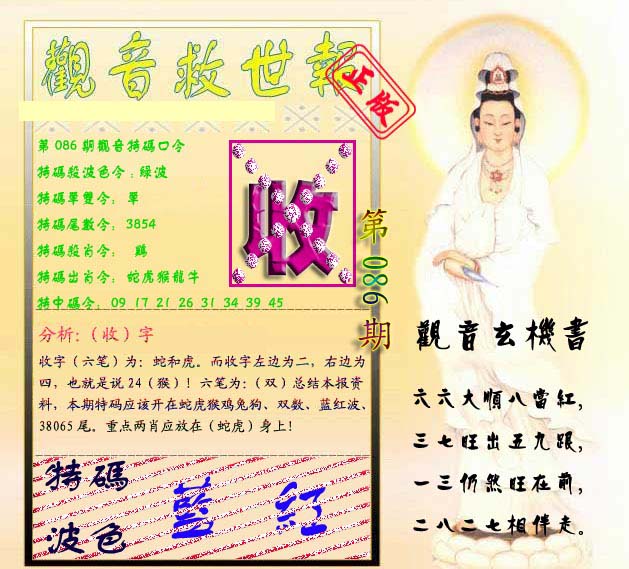 觀音救世報
正版
第 086 期觀音特碼口令
特碼殺波色令：綠波
特碼單雙令： 單
特碼尾數令： 3854
特碼殺肖令： 鷄
特碼出肖令： 蛇虎猴龍牛
特中碼令： 09 17 21 26 31 34 39 45
收
第086期
分析:（收）字
收字（六笔）为：蛇和虎。而收字左边为二，右边为
四，也就是说 24（猴）！六笔为：（双）总结本报资
料，本期特码应该开在蛇虎猴鸡兔狗、双数、蓝红波、
38065 尾。重点两肖应放在（蛇虎）身上！
特碼
波色
藍 红
觀音玄機書
六六大順八當紅，
三七旺出五九跟，
一三仍然旺在前，
二八二七相伴走。